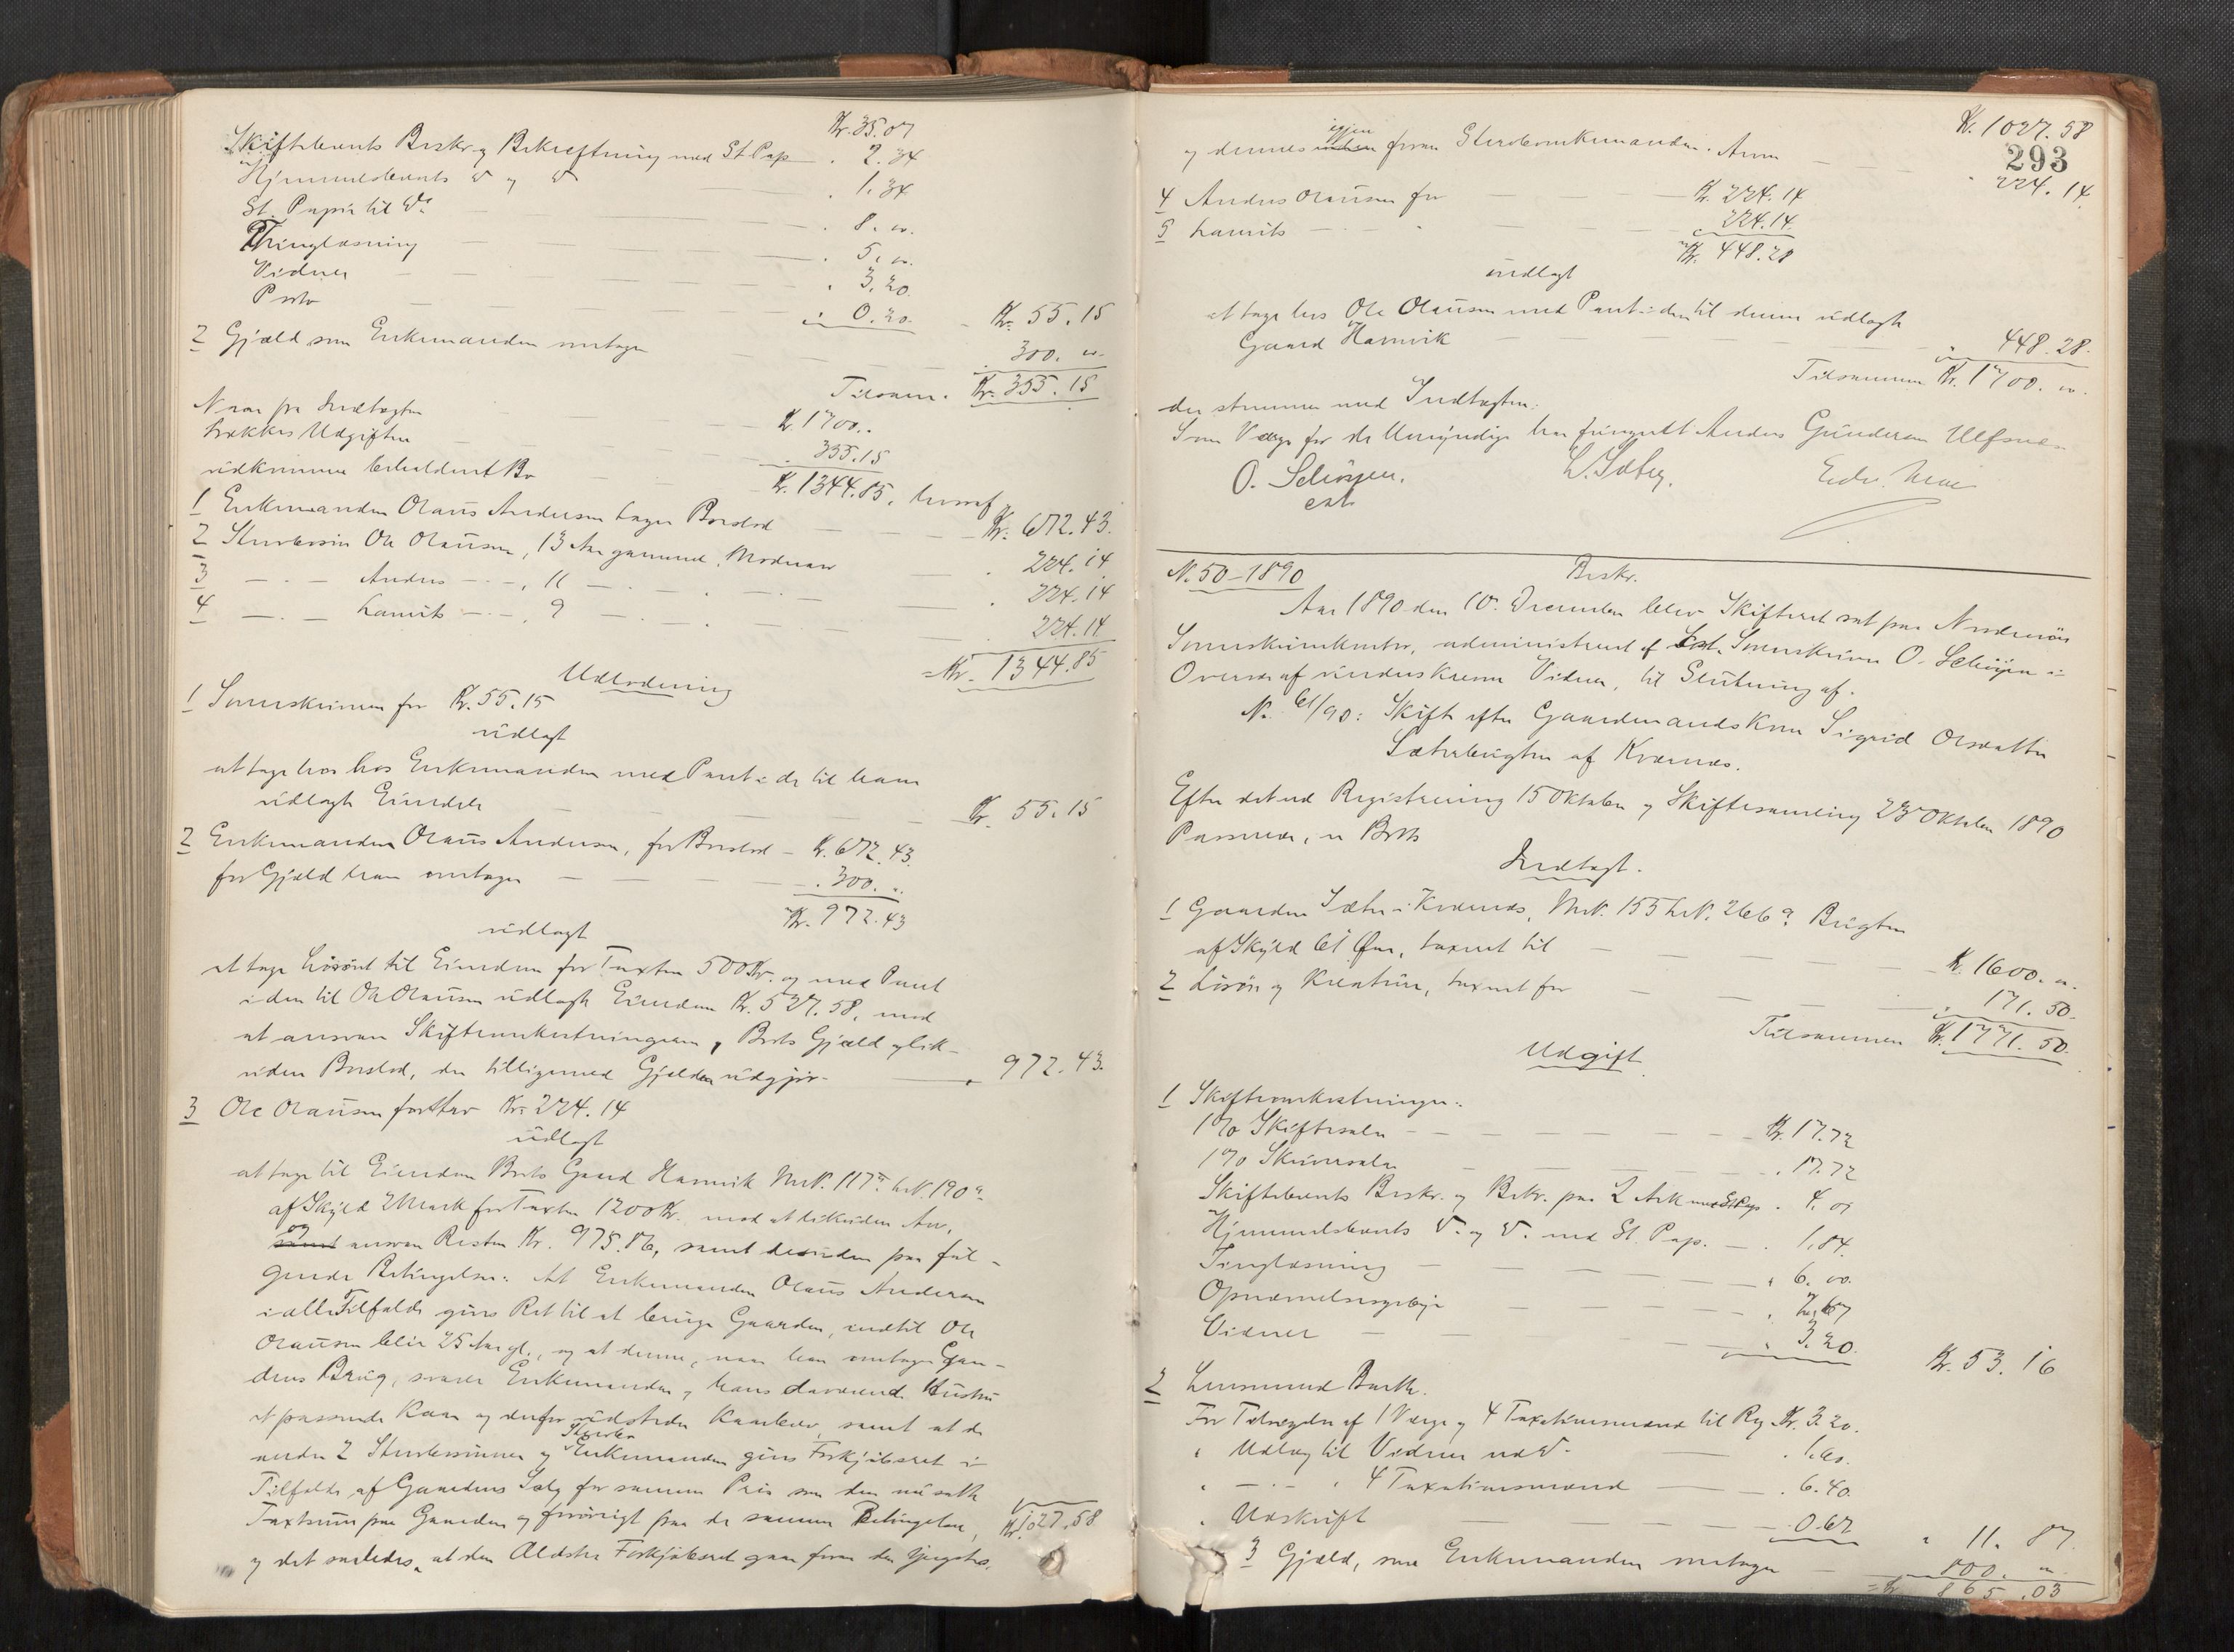 Kr. 35.07
Skiftebrevets Beskr. og Bekræftning med St. Pap. 2.34
Hjemmelsbrevets d° og d° 1.34
St. Papir til d° 8. "
Thinglæsning 5. "
Vidner 3.20
Porto 0.20 Kr. 55.15
2 Gjæld som Enkemanden overtager 300. "
Tilsam. Kr. 355.15
Naar fra Indtægten Kr. 1700. "
trækkes Udgiften 355.15
udkommer beholdent Bo Kr. 1344.85, hvoraf
1 Enkemanden Olaus Andersen tager Boeslod Kr. 672.43.
2 Stervbøsøn Ole Olausen, 13 Aar gammel, Mødrearv 224.14
3 — Anders — , 11 — 224.14
4 — Laurits — , 9 — 224.14
Kr. 1344.85
Udlodning
1 Sorenskriveren for Kr. 55.15
udlagt
at tage hos Enkemanden med Pant i de til ham
udlagte Eiendele Kr. 55.15
2 Enkemanden Olaus Andersen, for Boeslod Kr. 672.43
for Gjæld han overtager 300. "
Kr. 972.43
udlagt
at tage Løsøret til Eiendom for Taxten 500 Kr. og med Pant
i den til Ole Olausen udlagte Eiendom Kr. 527.58, mod
at ansvare Skifteomkostningerne, Boets Gjæld og lik-
videre Boeslod, der tilligemed Gjælden udgjør 972.43.
3 Ole Olausen for Arv Kr. 224.14
udlagt
at tage til Eiendom Boets Gaard Hamvik M.N. 117 L.N. 190 a
af Skyld 2 Mark for Taxten 1200 Kr. mod at likvidere Arv,
og
samt ansvare Resten Kr. 975.86, samt desuden paa føl-
gende Betingelser: At Enkemanden Olaus Andersen
i alle Tilfælde gives Ret til at bruge Gaarden, indtil Ole
Olausen blir 25 Aar gl., og at denne, naar han overtager Gaar-
dens Brug, svarer Enkemanden og hans daværende Hustru
et passende Kaar og derfor udsteder Kaarbrev, samt at de
andre 2 Stervbøsønner og Enkemanden gives Forkjøbsret i
Tilfælde af Gaardens Salg for samme Pris som den nu satte
Taxtsum paa Gaarden og forøvrigt paa de samme Betingelser, Kr. 1027.58
og det saaledes, at den Ældstes Forkjøbsret gaar foran den Yngstes,
Kr. 1027.58
293
igjen
og dennes foran Stervboenkemanden. Arv 224.14.
4 Anders Olausen for Kr. 224.14
5 Laurits 224.14.
Kr. 448.28
udlagt
at tage hos Ole Olausen med Pant i den til denne udlagte
Gaard Hamvik 448.28.
Tilsammen Kr. 1700. "
der stemmer med Indtægten.
Som Værge for de Umyndige har fungeret Anders Gunderson Ulfsnes
O. Schiøyen.
cst.
N. 50 - 1890 Beskr.
Aar 1890 den 10. December blev Skifteret sat paa Nordmøre
Sorenskriverkontor, administreret af cst. Sorenskriver O. Schiøyen i
Overvær af underskrevne Vidner, til Slutning af:
No. 61/90: Skifte efter Gaardmandskone Sigrid Olsdatter
Sæterbugten af Kvernes.
Efter det ved Registrering 15 Oktober og Skiftesamling 23 Oktober 1890
Passerede, er Boets
Indtægt.
1 Gaarden Sæter i Kvernes, M.N. 155 L.N. 266 a Bugten
af Skyld 61 Øre, taxeret til Kr. 1600. "
2 Løsøre og Kreaturer, taxeret for 171.50.
Tilsammen Kr. 1771.50.
Udgift
1 Skifteomkostninger:
1 % Skiftesalær Kr. 17.72
1 % Skriversalær 17.72
Skiftebrevets Beskr. og Bekr. paa 2 Ark med St. Pap. 4.01
Hjemmelsbrevets d° og d° med St. Pap. 1.84.
Tinglæsning 6.00.
Opnævnelsesgebyr 2.67
Vidner 3.20. Kr. 53.16
2 Lensmand Barth.
For Tilsigelse af 1 Værge og 4 Taxationsmænd til Reg. Kr. 3.20.
" Udlæg til Vidner ved d° 1.60.
" — " 4 Taxationsmænd 6.40.
" Udskrift 0.67 11.87.
3 Gjæld, som Enkemanden overtager 800. "
Kr. 865.03